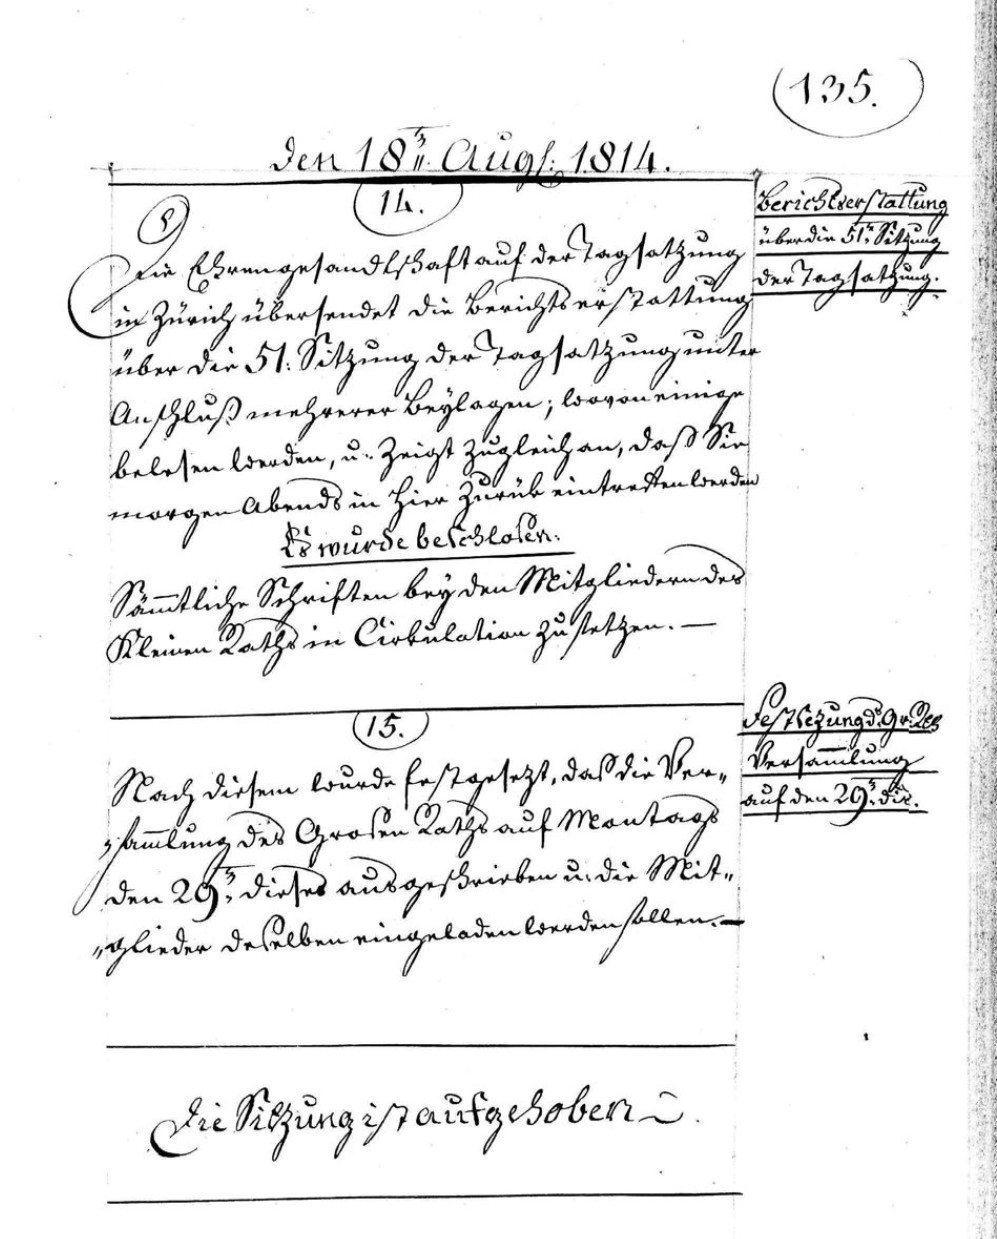 (135.)
Den 18.n Augs: 1814.
14.
Berichtserstattung
über die 51n Sitzung
der Tagsatzung.
Die Ehrengesandtschaft auf der Tagsatzung
in Zürich übersendet die Berichtserstattung
über die 51: Sitzung der Tagsatzung unter
Anschluß mehrerer Beylagen; wovon einige
belesen werden, u: zeigt zugleich an, daß Sie
morgen Abends in hier zurük eintreffen werden
Es wurde beschloßen:
Sämmtliche Schriften bey den Mitgliedern des
Kleinen Raths in Cirkulation zu setzen. —
15.
Festsezung d. Gr: Rths
Versammlung
auf den 29n dis.
Nach diesem wurde festgesezt, daß die Ver„
„sammlung des Großen Raths auf Montags
den 29n dieses ausgeschrieben u: die Mit„
„glieder deßelben eingeladen werden sollen. —
Die Sitzung ist aufgehoben